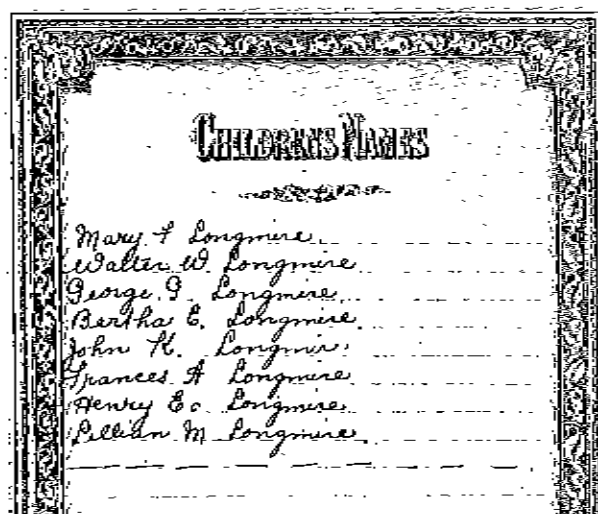 CHILDREN'S NAMES
Mary F Longmire.
Walter W. Longmire
George G. Longmire
Bertha E. Longmire
John K. Longmire
Frances A Longmire
Henry E. Longmire
Lillian M Longmire